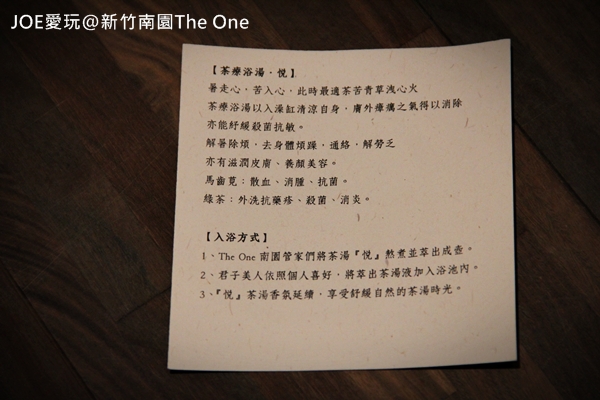 JOE愛玩@新竹南園The One
【茶療浴湯．悅】
暑走心，苦入心，此時最適茶苦青草洩心火
茶療浴湯以入澡缸清涼自身，膚外瘴癘之氣得以消除
亦能紓緩殺菌抗敏。
解暑除煩，去身體煩躁，通絡，解勞乏
亦有滋潤皮膚、養顏美容。
馬齒莧：散血、消腫、抗菌。
綠茶：外洗抗藥疹、殺菌、消炎。
【入浴方式】
1、The One 南園管家們將茶湯『悅』熬煮並萃出成壺。
2、君子美人依照個人喜好，將萃出茶湯液加入浴池內。
3、『悅』茶湯香氛延續，享受舒緩自然的茶湯時光。